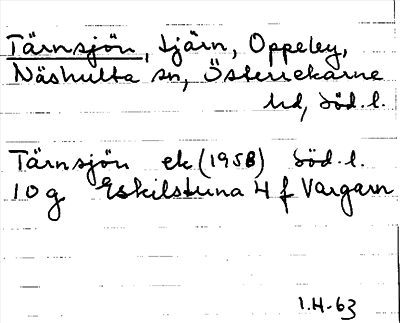 Tärnsjön, tjärn, Oppeley,
Näshulta sn, Österrekarne
hd, Söd.l.
Tärnsjön ek (1958) Söd.l.
10g Eskilstuna 4 f Vargarn
1.H-63